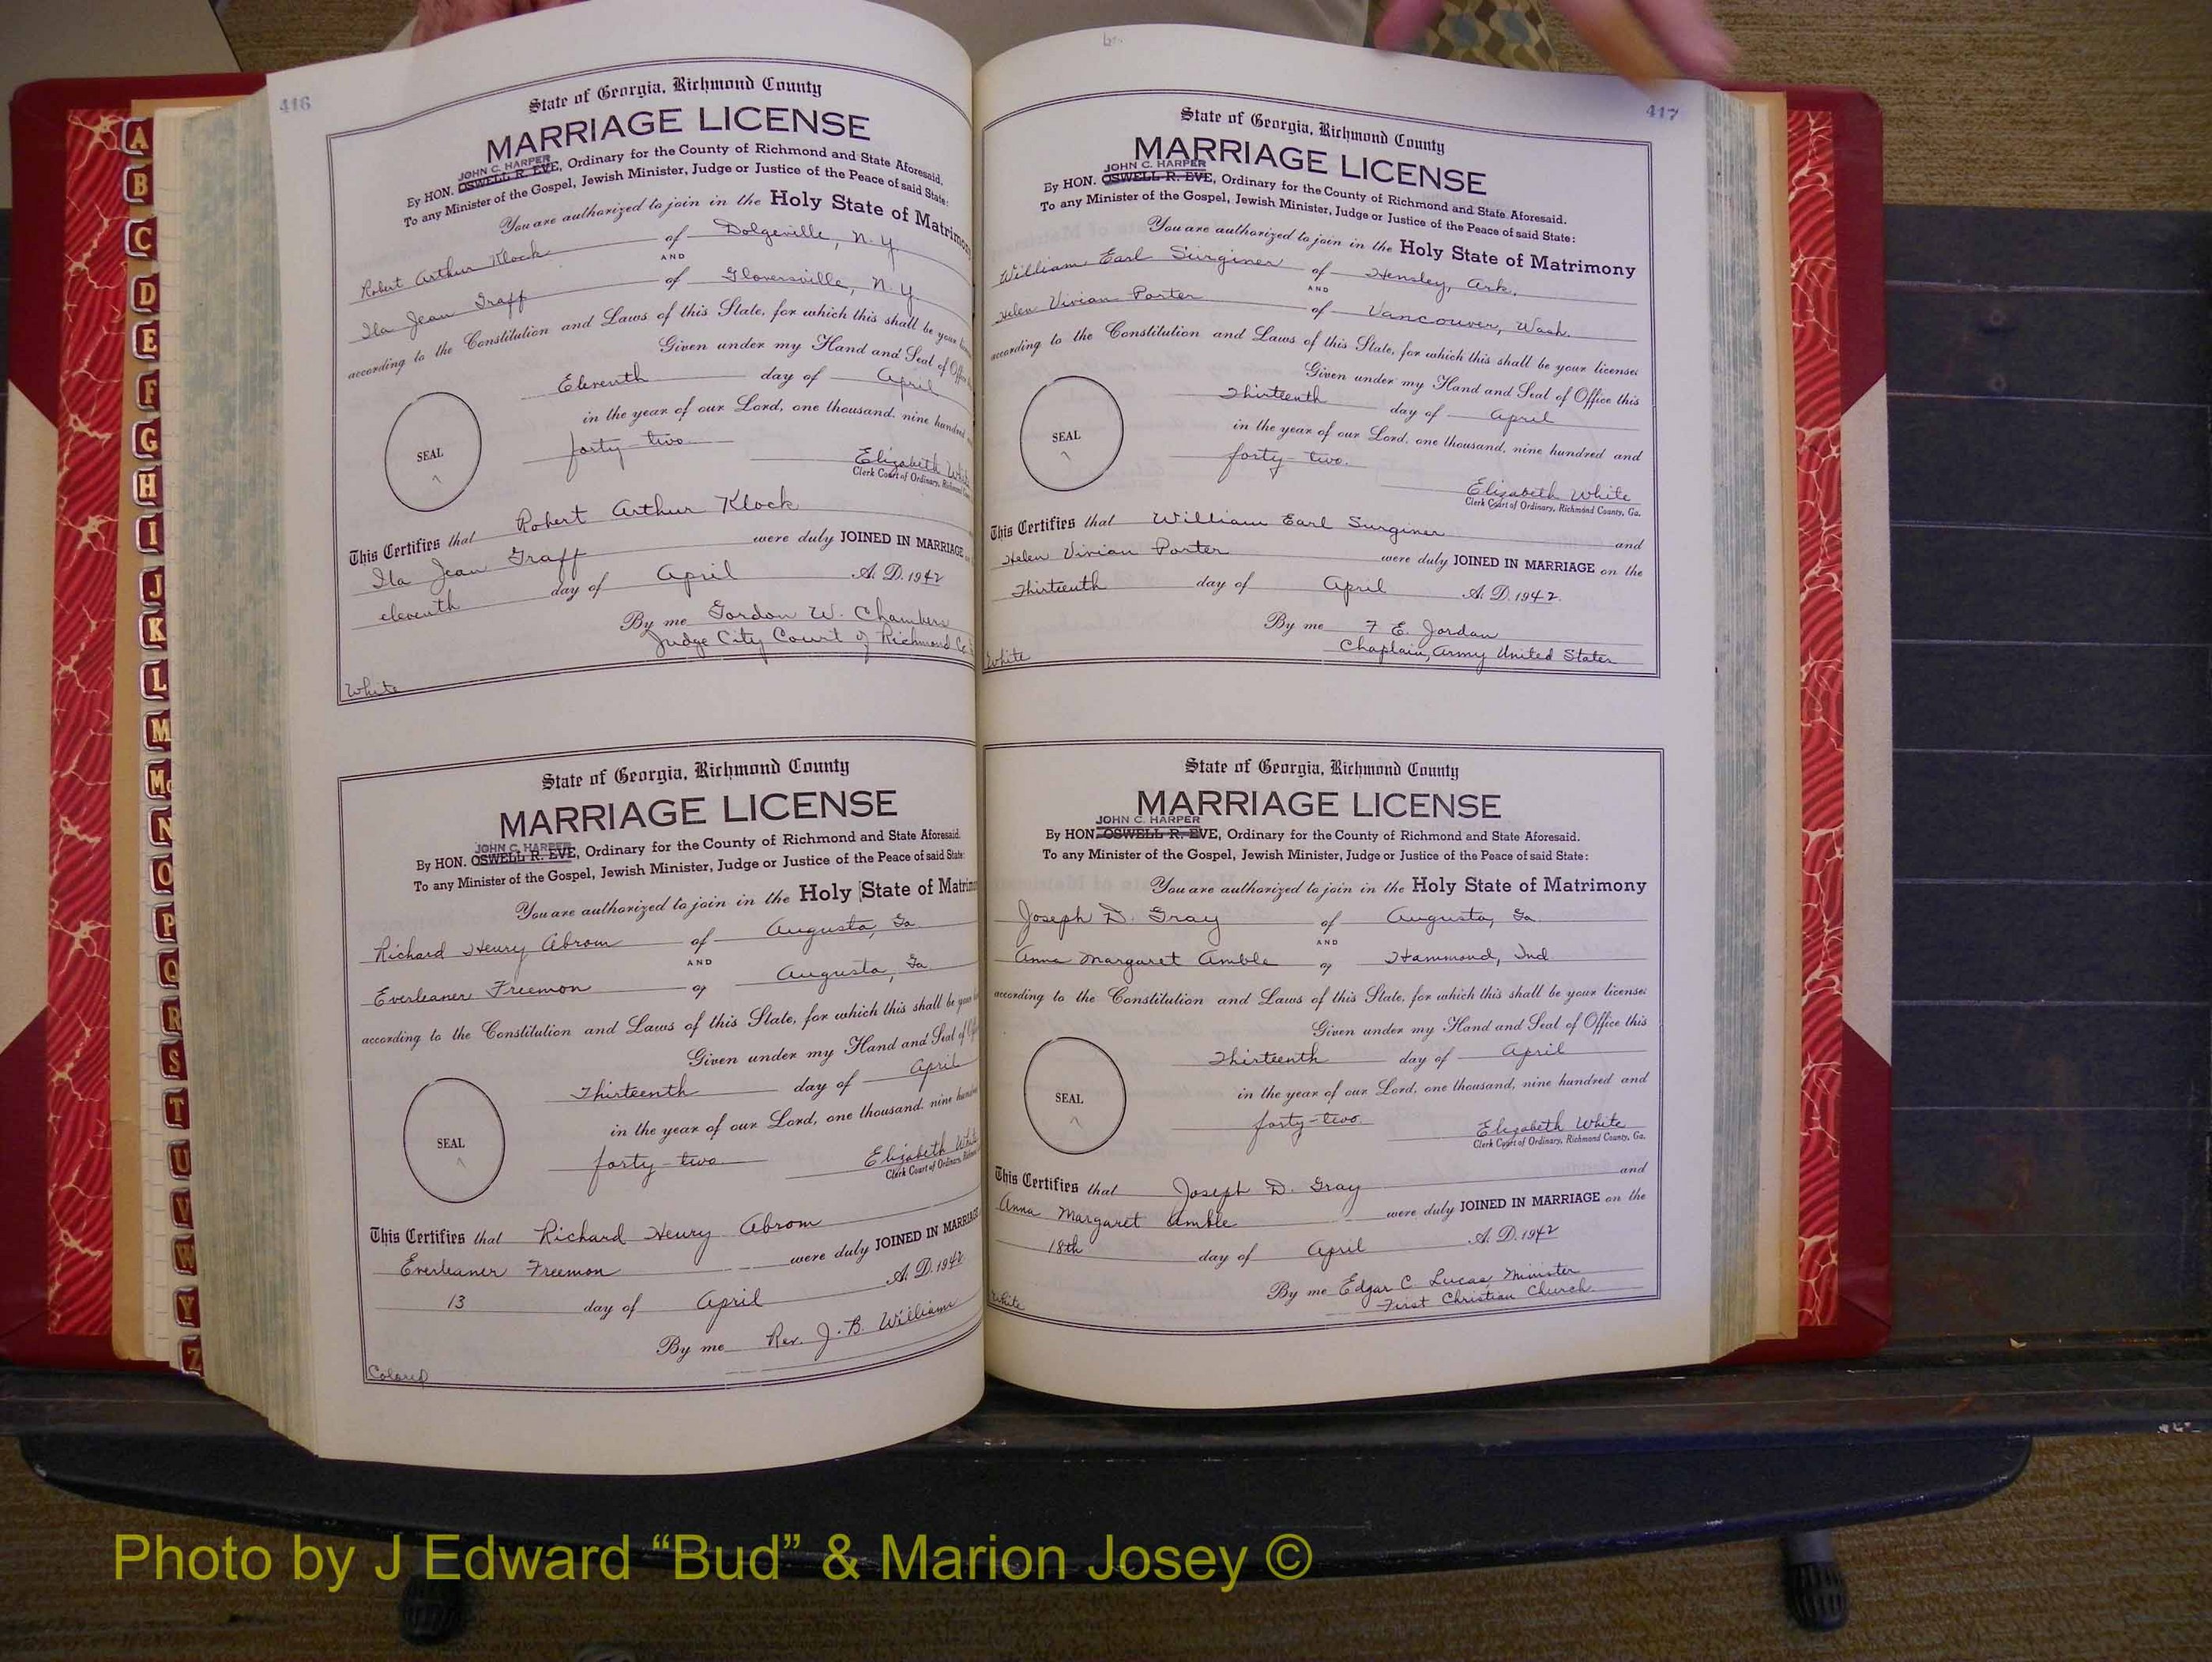 416
State of Georgia, Richmond County
MARRIAGE LICENSE
JOHN C. HARPER
By HON. OSWELL R. EVE, Ordinary for the County of Richmond and State Aforesaid.
To any Minister of the Gospel, Jewish Minister, Judge or Justice of the Peace of said State:
You are authorized to join in the Holy State of Matrimony
Robert Arthur Klock of Dolgeville, N.Y.
AND
Ila Jean Graff of Gloversville, N.Y
according to the Constitution and Laws of this State, for which this shall be your
Given under my Hand and Seal of Office
Eleventh day of April
in the year of our Lord, one thousand, nine hundred
forty-two
SEAL
Elizabeth White
Clerk Court of Ordinary, Richmond
This Certifies that Robert Arthur Klock
Ila Jean Graff were duly JOINED IN MARRIAGE
eleventh day of April A. D. 1942
By me Gordon W. Chambers
Judge City Court of Richmond Co
White
State of Georgia, Richmond County
MARRIAGE LICENSE
JOHN C. HARPER
By HON. OSWELL R. EVE, Ordinary for the County of Richmond and State Aforesaid.
To any Minister of the Gospel, Jewish Minister, Judge or Justice of the Peace of said State:
You are authorized to join in the Holy State of Matrim
Richard Henry Abrom of Augusta, Ga.
AND
Everleaner Freemon of Augusta, Ga.
according to the Constitution and Laws of this State, for which this shall be your
Given under my Hand and Seal of
Thirteenth day of April
in the year of our Lord, one thousand, nine hundred
forty-two
SEAL
Elizabeth White
Clerk Court of Ordinary,
This Certifies that Richard Henry Abrom
Everleaner Freemon were duly JOINED IN MARRIAGE
13 day of April A. D. 1942
By me Rev. J. B. Williams
Colored
417
State of Georgia, Richmond County
MARRIAGE LICENSE
JOHN C. HARPER
By HON. OSWELL R. EVE, Ordinary for the County of Richmond and State Aforesaid.
To any Minister of the Gospel, Jewish Minister, Judge or Justice of the Peace of said State:
You are authorized to join in the Holy State of Matrimony
William Earl Surginer of Hensley, Ark.
AND
Helen Vivian Porter of Vancouver, Wash.
according to the Constitution and Laws of this State, for which this shall be your license:
Given under my Hand and Seal of Office this
Thirteenth day of April
in the year of our Lord, one thousand, nine hundred and
forty-two.
SEAL
Elizabeth White
Clerk Court of Ordinary, Richmond County, Ga.
This Certifies that William Earl Surginer and
Helen Vivian Porter were duly JOINED IN MARRIAGE on the
Thirteenth day of April A. D. 1942.
By me F E. Jordan
Chaplain, Army United States
White
State of Georgia, Richmond County
MARRIAGE LICENSE
JOHN C. HARPER
By HON. OSWELL R. EVE, Ordinary for the County of Richmond and State Aforesaid.
To any Minister of the Gospel, Jewish Minister, Judge or Justice of the Peace of said State:
You are authorized to join in the Holy State of Matrimony
Joseph D. Gray of Augusta, Ga.
AND
Anna Margaret Amble of Hammond, Ind.
according to the Constitution and Laws of this State, for which this shall be your license:
Given under my Hand and Seal of Office this
Thirteenth day of April
in the year of our Lord, one thousand, nine hundred and
forty-two.
SEAL
Elizabeth White
Clerk Court of Ordinary, Richmond County, Ga.
This Certifies that Joseph D. Gray and
Anna Margaret Amble were duly JOINED IN MARRIAGE on the
18th day of April A. D. 1942
By me Edgar C. Lucas, Minister
First Christian Church
White
A
B
C
D
E
F
G
H
I
J
K
L
M
Mc
N
O
P
Q
R
S
T
U
V
W
Y
Z
Photo by J Edward “Bud” & Marion Josey ©